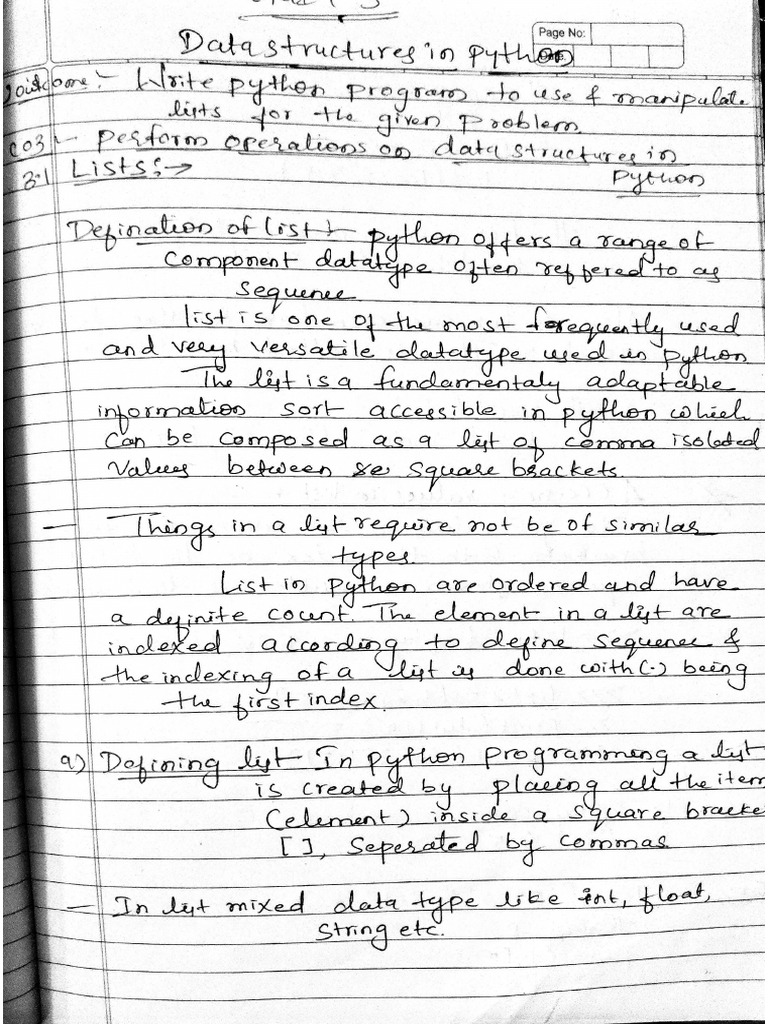 Page No:
Data structures in python
Outcome:- Write python program to use & manipulate
lists for the given problem
CO3:- Perform operations on data structures in
Python
3.1 Lists:→
Defination of list :- python offers a range of
Component datatype often reffered to as
sequence
list is one of the most forequently used
and very versatile datatype used in python
The list is a fundamentaly adaptable
information sort accessible in python which
can be composed as a list of comma isolated
values between se square brackets
— Things in a list require not be of similar
types.
List in Python are ordered and have
a definite count. The element in a list are
indexed according to define sequence &
the indexing of a list is done with (-) being
the first index.
a) Defining list In python programming a list
is created by placing all the item
(element) inside a square bracke
[ ], Seperated by commas
— In list mixed data type like int, float,
String etc.